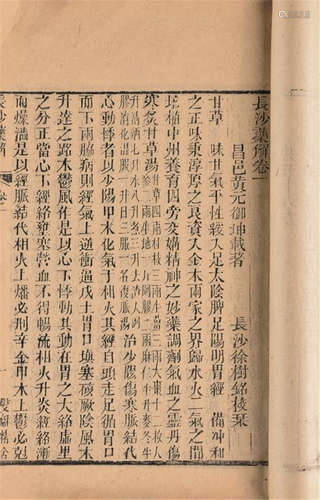 長沙藥解卷一
昌邑黃元御坤載著　長沙徐樹銘校栞
甘草
味甘氣平性緩入足太陰脾足陽明胃經　備冲和
之正味秉淳厚之良資入金木兩家之界歸水火二氣之間
培植中州養育四旁交媾精神之妙藥調劑氣血之靈丹傷
寒炙甘草湯甘草四兩桂枝三兩生薑三兩大棗十二枚人
參二兩生地一斤阿膠二兩麻仁半升麥冬半
升清酒七升水八升煑三升去渣入阿
膠消化温服一升日三服一名復脈湯治少陽傷寒脈結代
心動悸者以少陽甲木化氣于相火其經自頭走足循胃口
而下兩脇病則經氣上逆過戊土胃口填塞礙厥陰風木
升達之路木鬱風作是以心下悸動其動在胃之大絡虛里
之分正當心下經絡壅塞營血不得暢流相火升炎經絡漸
而燥澀是以經脈結代相火上燔必刑辛金甲木上鬱必剋
長沙藥解　卷一